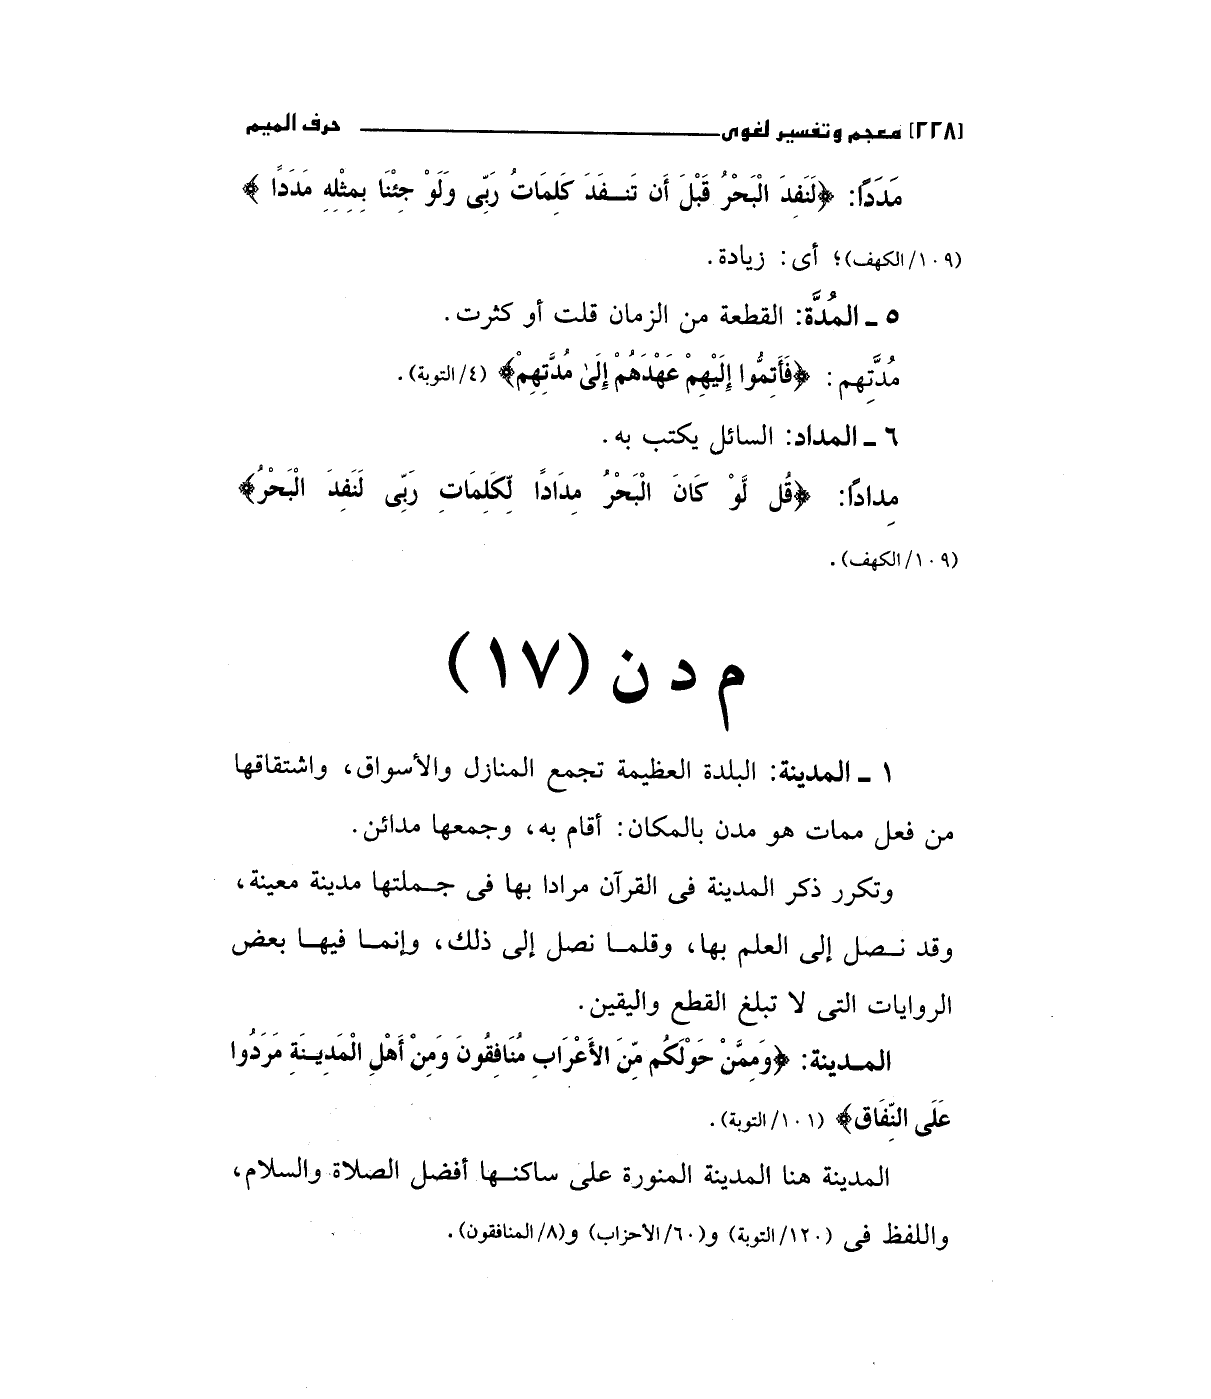 [٢٢٨] معجم وتفسير لغوى ــــــــــ حرف الميم
مَدَدًا: ﴿لَنَفِدَ الْبَحْرُ قَبْلَ أَن تَنــفَدَ كَلِمَاتُ رَبِّى وَلَوْ جِئْنَا بِمِثْلِهِ مَدَدًا ﴾
(١٠٩/الكهف)؛ أى: زيادة.
٥ ـ المُدَّة: القطعة من الزمان قلت أو كثرت.
مُدَّتِهم: ﴿فَأَتِمُّوا إِلَيْهِمْ عَهْدَهُمْ إِلَىٰ مُدَّتِهِمْ﴾ (٤/التوبة).
٦ ـ المداد: السائل يكتب به.
مِدادًا: ﴿قُل لَّوْ كَانَ الْبَحْرُ مِدَادًا لِّكَلِمَاتِ رَبِّى لَنَفِدَ الْبَحْرُ﴾
(١٠٩/الكهف).
م د ن (١٧)
١ ـ المدينة: البلدة العظيمة تجمع المنازل والأسواق، واشتقاقها
من فعل ممات هو مدن بالمكان: أقام به، وجمعها مدائن.
وتكرر ذكر المدينة فى القرآن مرادا بها فى جـملتها مدينة معينة،
وقد نـصل إلى العلم بها، وقلمـا نصل إلى ذلك، وإنمـا فيهـا بعض
الروايات التى لا تبلغ القطع واليقين.
المـدينة: ﴿وَمِمَّنْ حَوْلَكُم مِّنَ الأَعْرَابِ مُنَافِقُونَ وَمِنْ أَهْلِ الْمَدِينَةِ مَرَدُوا
عَلَى النِّفَاق﴾ (١٠١/التوبة).
المدينة هنا المدينة المنورة على ساكنـها أفضل الصلاة والسلام،
واللفظ فى (١٢٠/التوبة) و(٦٠/الأحزاب) و(٨/المنافقون).